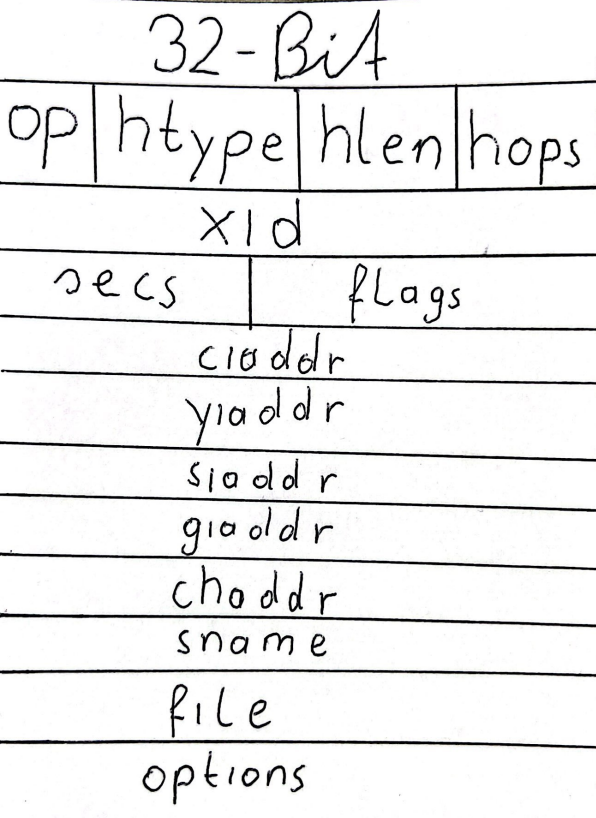 32-Bit
op htype hlen hops
xid
secs flags
ciaddr
yiaddr
siaddr
giaddr
chaddr
sname
file
options